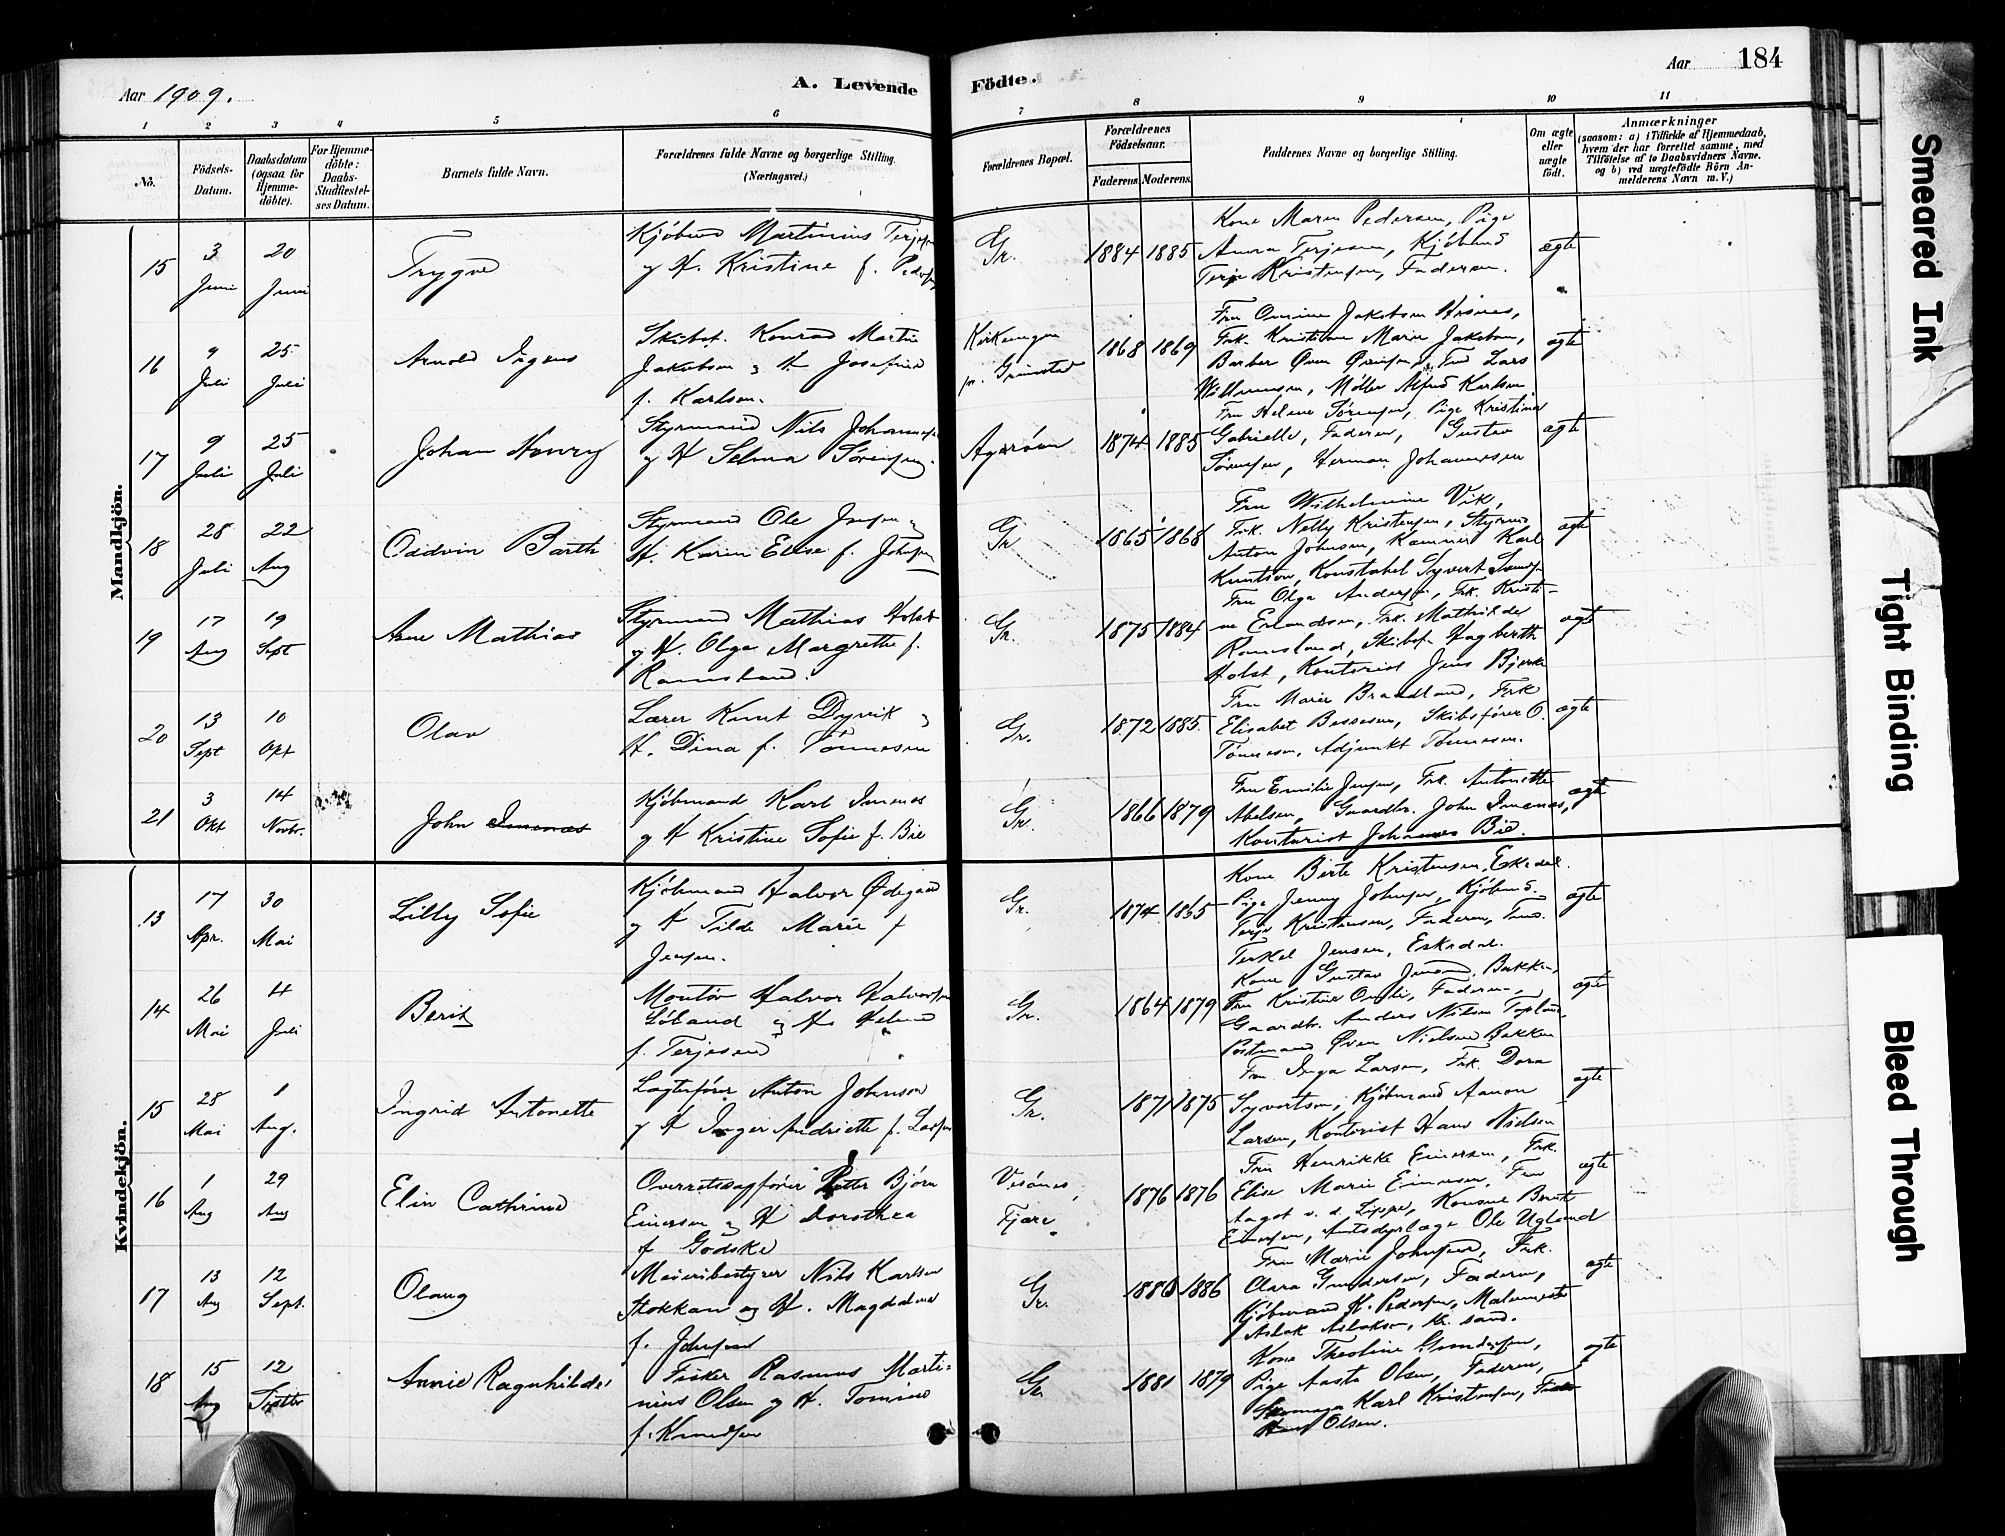 Aar 1909.
A. Levende
Födte.
Aar
184
1
2
3
4
5
6
7
8
9
10
11
No.
Födsels-
Datum.
Daabsdatum
(ogsaa for
Hjemme-
döbte).
For Hjemme-
döbte:
Daabs-
Stadfæstel-
ses Datum.
Barnets fulde Navn.
Forældrenes fulde Navne og borgerlige Stilling.
(Næringsvei.)
Forældrenes Bopæl.
Forældrenes
Födselsaar.
Faderens.
Moderens.
Faddernes Navne og borgerlige Stilling.
Om ægte
eller
uægte
födt.
Anmærkninger
(saasom: a) i Tilfælde af Hjemmedaab,
hvem der har forrettet samme, med
Tilföielse af to Daabsvidners Navne.
og b) ved uægtefödte Börn An-
melderens Navn m. V.)
Mandkjön.
15
3
Juni
20
Juni
Trygve
Kjöbmd Martinius Terjesen
og H. Kristine f. Pedersen
Gr.
1884
1885
Kone Maren Pedersen, Pige
Anna Terjesen, Kjöbmd
Terje Kristensen, Faderen.
ægte
16
9
Juli
25
Juli
Arnold Ingens
Skibsf. Konrad Martin
Jakobsen og H Josefine
f. Karlsen.
Kirkeengen
pr. Grimstad
1868
1869
Fru Omine Jakobsen Hisnes,
Frk. Kristiane Marie Jakobsen,
Barber Oven Örensen, Tmd Lars
Willumsen, Möller Alfred Karlsen
ægte
17
9
Juli
25
Juli
Johan Henry
Styrmand Nils Johannesen
og H Selma Sörensen.
Agerøen
1874
1885
Fru Helene Sörensen, Pige Kristina
Gabrielle, Faderen, Gustav
Sörensen, Herman Johannesen
ægte
18
28
Juli
22
Aug
Oddvin Barth
Styrmand Ole Jensen og
H. Karen Elise f. Johnsen
Gr
1865
1868
Fru Wilhelmine Vik,
Frk. Nelly Kristensen, Styrmd
Anton Johnsen, Kanner Karl
Knutson, Konstabel Syvert
ægte
19
17
Aug
19
Sept
Arne Mathias
Styrmand Mathias Holst
og H. Olga Margrethe f.
Ramsland.
Gr.
1875
1884
Fru Olga Andersen, Frk. Kristi-
ne Erlandsen, Frk. Mathilde
Ramsland, Skibsf. Hagbarth
Holst, Kontorist Jens Bjerke
ægte
20
13
Sept
10
Okt
Olav
Lærer Knut Dyvik og
H. Dina f. Tönnesen
Gr.
1872
1885
Fru Marie Braadland, Frk
Elisabet Bessesen, Skibsförer O.
Tönnesen, Adjunkt Tönnesen.
ægte
21
3
Okt
14
Novbr.
John Imenæs
Kjöbmand Karl Imenæs
og H Kristine Sofie f. Bie
Gr.
1866
1879
Fru Emilie Jensen, Frk. Antonette
Abelsen, Gaardbr. John Imenæs,
Kontorist Johannes Bie.
ægte
Kvindekjön.
13
17
Apr.
30
Mai
Lilly Sofie
Kjöbmand Halvor Ödegaard
og H Tilde Marie f
Jensen.
Gr.
1874
1865
Kone Berte Kristensen, Eskedal.
Pige Jenny Johnsen, Kjöbmd
Terje Kristensen, Faderen, Tmd.
Terkel Jensen, Eskedal.
ægte
14
26
Mai
4
Juli
Berit
Montör Halvor Halvorsen
Löland og H. Helene
f. Terjesen
Gr.
1864
1879
Kone Gustav Jensen, Bakken,
Fru Kristine Omli, Faderen,
Gaardbr. Anders Nilsen Topland
Postmand Öven Nielsen Bakken
ægte
15
28
Mai
1
Aug.
Ingrid Antonette
Lægterförer Anton Johnsen
og H Inger Andriette f. Larsen
Gr.
1871
1875
Fru Inga Larsen, Frk. Dora
Syvertsen, Kjöbmand Aanon
Larsen, Kontorist Hans Nielsen
ægte
16
1
Aug
29
Aug
Elin Cathrine
Overretssagförer Petter Björn
Emersen og H Dorothea
f Gödske
Vesönes,
Fjære.
1876
1876
Fru Henrikke Emersen, Frk.
Elise Marie Emersen, Fru
Aagot v. d. Lippe, Konsul Bernt
Emersen, Amtsdyrlæge Ole Ugland
ægte
17
13
Aug
12
Sept.
Olaug
Meieribestyrer Nils Karlsen
Stokkan og H. Magdalena
f. Johnsen
Gr.
1886
1886
Fru Marie Johnsen, Frk.
Clara Gundersen, Faderen,
Kjöbmand H. Pedersen, Malermester
Aslak Aslaksen, Kr. sand.
ægte
18
15
Aug
12
Septbr
Annie Ragnhilde
Fisker Rasmus Marti-
nius Olsen og H. Tomine
f. Knudsen
Gr.
1881
1879
Kone Theoline Gundersen,
Pige Aasta Olsen, Faderen,
Karl Kristensen, Fisker
Olsen.
ægte
Smeared Ink
Tight Binding
Bleed Through